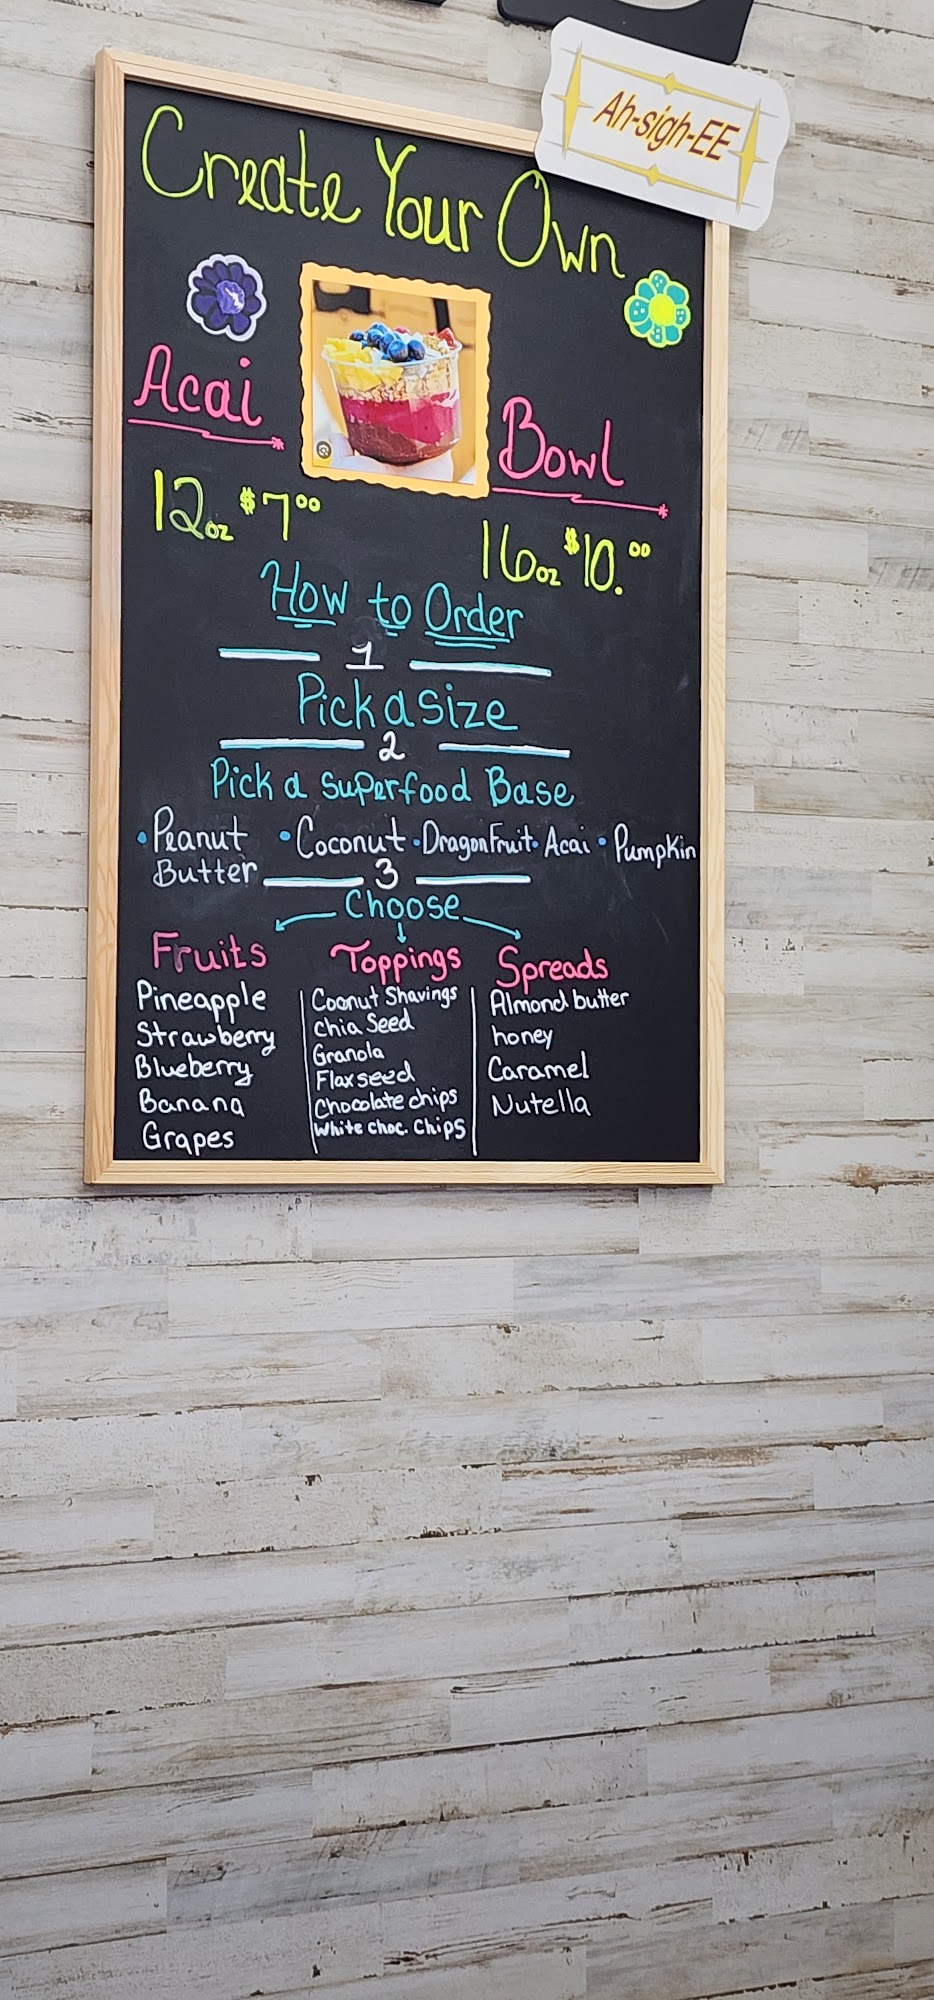 Ah-sigh-EE
Create Your Own
Acai Bowl
12oz $7.00
16oz $10.00
How to Order
1
Pick a size
2
Pick a Superfood Base
• Peanut Butter • Coconut • Dragon Fruit • Acai • Pumpkin
3
Choose
Fruits
Pineapple
Strawberry
Blueberry
Banana
Grapes
Toppings
Coconut Shavings
Chia Seed
Granola
Flaxseed
Chocolate chips
White choc. Chips
Spreads
Almond butter
honey
Caramel
Nutella